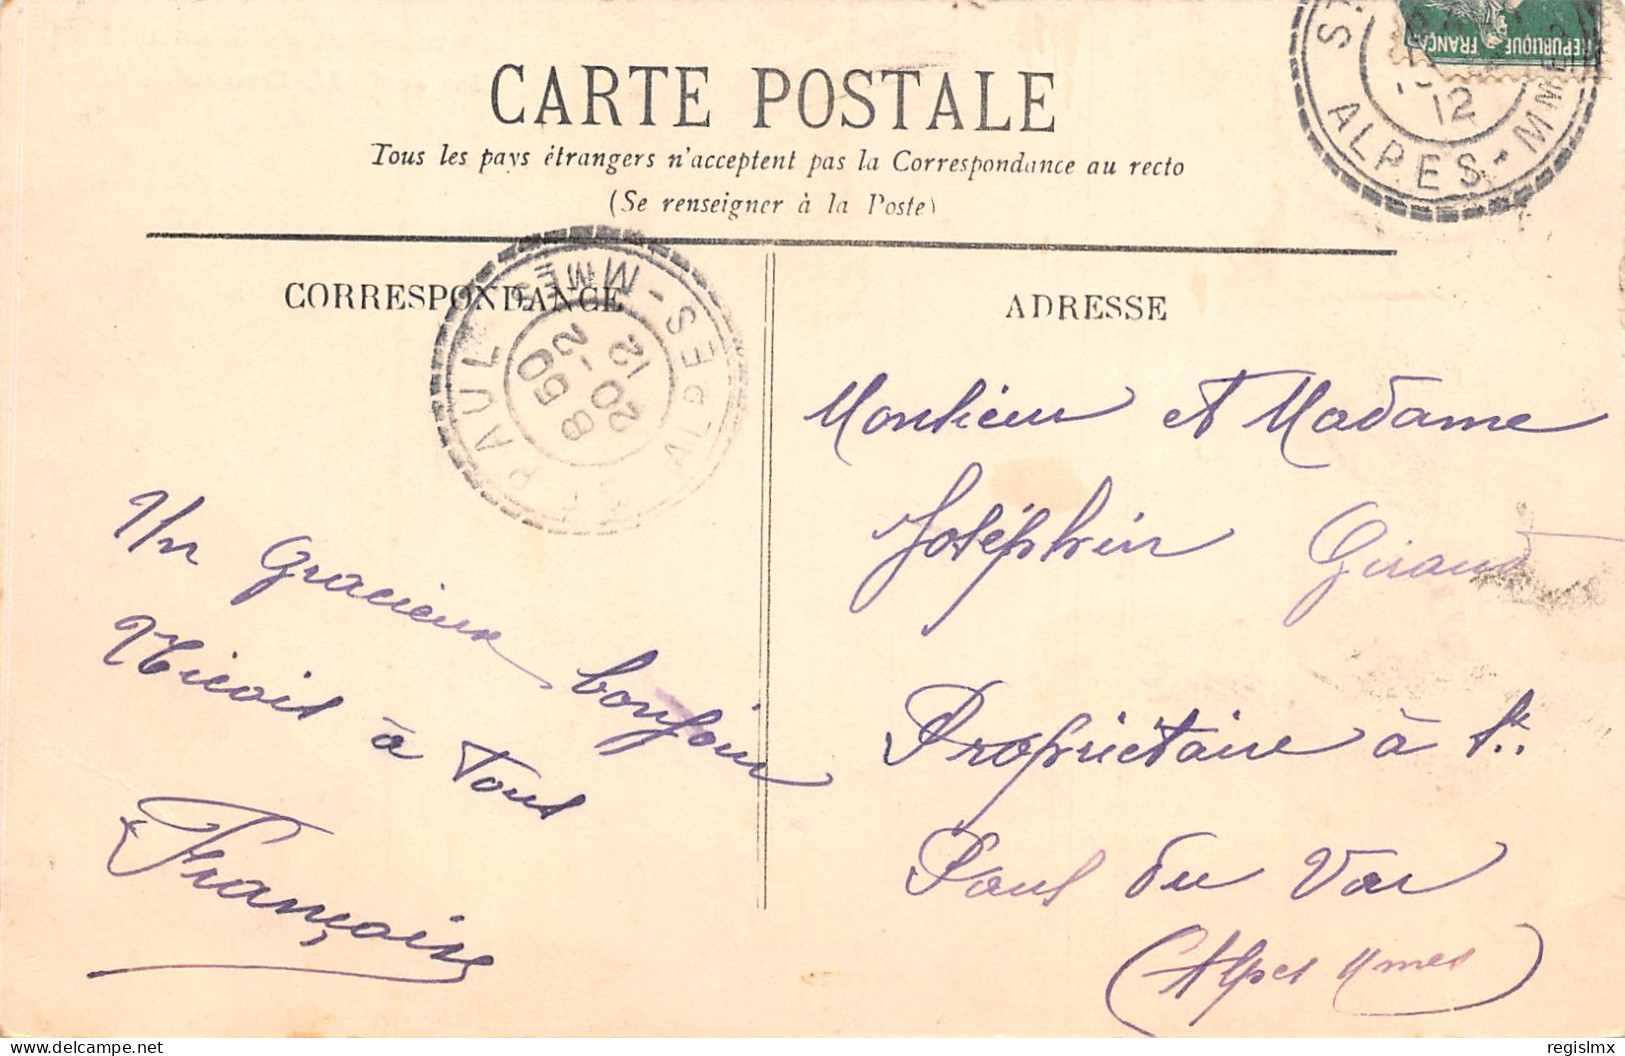 CARTE POSTALE
Tous les pays étrangers n'acceptent pas la Correspondance au recto
(Se renseigner à la Poste)
CORRESPONDANCE
ADRESSE
REPUBLIQUE FRANÇAI
12
ALPES-MMES
ST PAUL
ALPES-MMES
8 50
20-2
12
Un Gracieux bonjour
Nicois à tous
François
Monsieur et Madame
Joséphin Giraud
Propriétaire à St.
Paul du Var
(Alpes Mmes)
regislmx